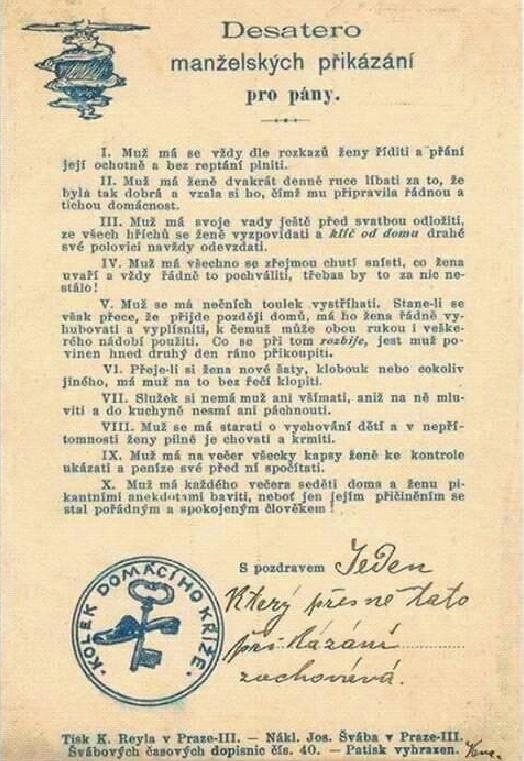 Desatero
manželských přikázání
pro pány.
I. Muž má se vždy dle rozkazů ženy říditi a přání
její ochotně a bez reptání plniti.
II. Muž má ženě dvakrát denně ruce líbati za to, že
byla tak dobrá a vzala si ho, čímž mu připravila řádnou a
tichou domácnost.
III. Muž má svoje vady ještě před svatbou odložiti,
ze všech hříchů se ženě vyzpovídati a klíč od domu drahé
své polovici navždy odevzdati.
IV. Muž má všechno se zřejmou chutí snísti, co žena
uvaří a vždy řádně to pochváliti, třebas by to za nic ne-
stálo!
V. Muž se má nočních toulek vystříhati. Stane-li se
však přece, že přijde později domů, má ho žena řádně vy-
hubovati a vyplísniti, k čemuž může obou rukou i veške-
rého nádobí použíti. Co se při tom rozbije, jest muž po-
vinen hned druhý den ráno přikoupiti.
VI. Přeje-li si žena nové šaty, klobouk nebo cokoliv
jiného, má muž na to bez řečí klopiti.
VII. Služek si nemá muž ani všímati, aniž na ně mlu-
viti a do kuchyně nesmí ani páchnouti.
VIII. Muž se má starati o vychování dětí a v nepří-
tomnosti ženy pilně je chovati a krmiti.
IX. Muž má na večer všecky kapsy ženě ke kontrole
ukázati a peníze své před ní spočítati.
X. Muž má každého večera seděti doma a ženu pi-
kantními anekdotami baviti, neboť jen jejím přičiněním se
stal pořádným a spokojeným člověkem!
KOLEK DOMÁCÍHO KŘÍŽE.
S pozdravem Jeden
Který přesně tato
přikázání
zachovává.
Tisk K. Reyla v Praze-III. — Nákl. Jos. Švába v Praze-III.
Švábových časových dopisnic čís. 40. — Patisk vyhrazen.